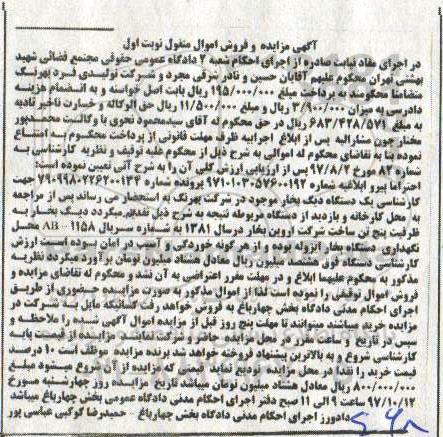 آگهی مزایده و فروش اموال منقول نوبت اول
در اجرای مفاد نیابت صادره از اجرای احکام شعبه ۲ دادگاه عمومی حقوقی مجتمع قضائی شهید
بهشتی تهران محکوم علیهم آقایان حسین و نادر شرقی مجرد و شرکت تولیدی فرد بهرنگ
متضامنا محکومند به پرداخت مبلغ ۱۹۵/۰۰۰/۰۰۰ ریال بابت اصل خواسته و به انضمام هزینه
دادرسی به میزان ۳/۹۰۰/۰۰۰ ریال و مبلغ ۱۱/۵۰۰/۰۰۰ ریال حق الوکاله و خسارت تاخیر تادیه
به مبلغ ۶۸۳/۴۲۸/۵۷۲ ریال در حق محکوم له آقای سیدمحمود نحوی با وکالت محمدپور
مختار چون مشارالیه پس از ابلاغ اجرائیه ظرف مهلت قانونی از پرداخت محکوم به امتناع
نموده بنا به تقاضای محکوم له اموالی به شرح ذیل از محکوم علیه توقیف و نظریه کارشناسی به
شماره ۸۲ مورخ ۹۷/۸/۲ پس از ارزیابی ارزش کلی آن را به شرح آتی تعیین نموده است:
احتراما پیرو ابلاغیه شماره ۹۷۱۰۱۰۳۰۵۷۶۰۰۱۹۲ پرونده شماره ۷۹۰۹۹۸۰۲۲۶۲۰۰۱۲۴ جهت
کارشناسی یک دستگاه دیگ بخار موجود در شرکت بهرنگ به استحضار می رساند پس از مراجعه
به محل کارخانه و بازدید از دستگاه مربوطه نتیجه به شرح ذیل تقدیم میگردد دیگ بخار به
ظرفیت پنج تن ساخت شرکت اروین بخار درسال ۱۳۸۱ به شماره سریال AB - ۱۱۵۸ محل
نگهداری دستگاه بخار ایزوله بوده و از هر گونه خوردگی و آسیب در امان بوده است ارزش
کارشناسی دستگاه فوق هشتصد میلیون ریال معادل هشتاد میلیون تومان برآورد میگردد نظریه
مذکور به محکوم علیهما ابلاغ و در مهلت مقرر اعتراضی به آن نشد و محکوم له تقاضای مزایده و
فروش اموال توقیفی را نموده است لذا از اموال مذکور به صورت مزایده حضوری از طریق
اجرای احکام مدنی دادگاه بخش چهارباغ به فروش خواهد رفت کسانیکه مایل به شرکت در
مزایده و خرید میباشند میتوانند تا مهلت پنج روز قبل از مزایده اموال آگهی شده را ملاحظه و
سپس در تاریخ و ساعت مقرر در محل مزایده حاضر و شرکت نمایند مزایده از قیمت پایه
کارشناسی شروع و به بالاترین پیشنهاد فروخته خواهد شد برنده مزایده موظف است ۱۰ درصد
قیمت خرید را نقدا در محل مزایده تودیع نماید قیمتی که مزایده از آن شروع میشود مبلغ
۸۰۰/۰۰۰/۰۰۰ ریال معادل هشتاد میلیون تومان میباشد تاریخ مزایده روز چهارشنبه مورخ
۹۷/۱۰/۱۲ ساعت ۹ الی ۱۱ صبح دفتر اجرای احکام مدنی دادگاه عمومی بخش چهارباغ میباشد
دادورز اجرای احکام مدنی دادگاه بخش چهارباغ - حمیدرضا کوکبی عباسی پور